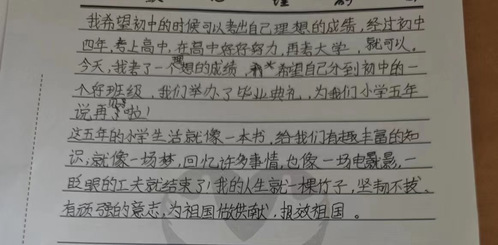 我希望初中的时候可以考出自己理想的成绩,经过初中
四年,考上高中,在高中好好努力,再考大学,就可以,
今天,我考了一个理想的成绩,希望自己分到初中的一
个好班级,我们举办了毕业典礼,为我们小学五年
说再见啦!
这五年的小学生活就像一本书,给我们有趣丰富的知
识,就像一场梦,回忆许多事情,也像一场电影,一
眨眼的工夫就结束了!我的人生就一棵竹子,坚韧不拔、
有顽强的意志,为祖国做供献,报效祖国。